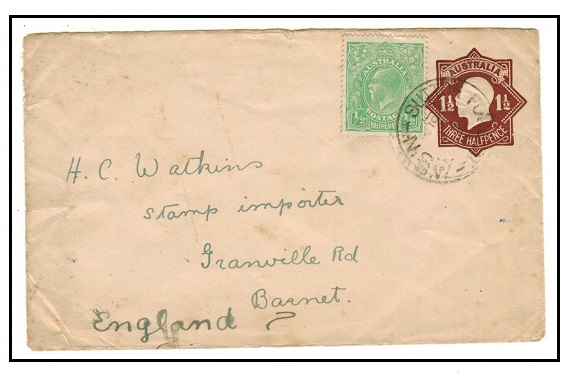 AUSTRALIA
½ POSTAGE ½
HALFPENNY
AUSTRALIA
1½ 1½
THREE HALFPENCE
H. C. Watkins
Stamp importer
Granville Rd
Barnet.
England